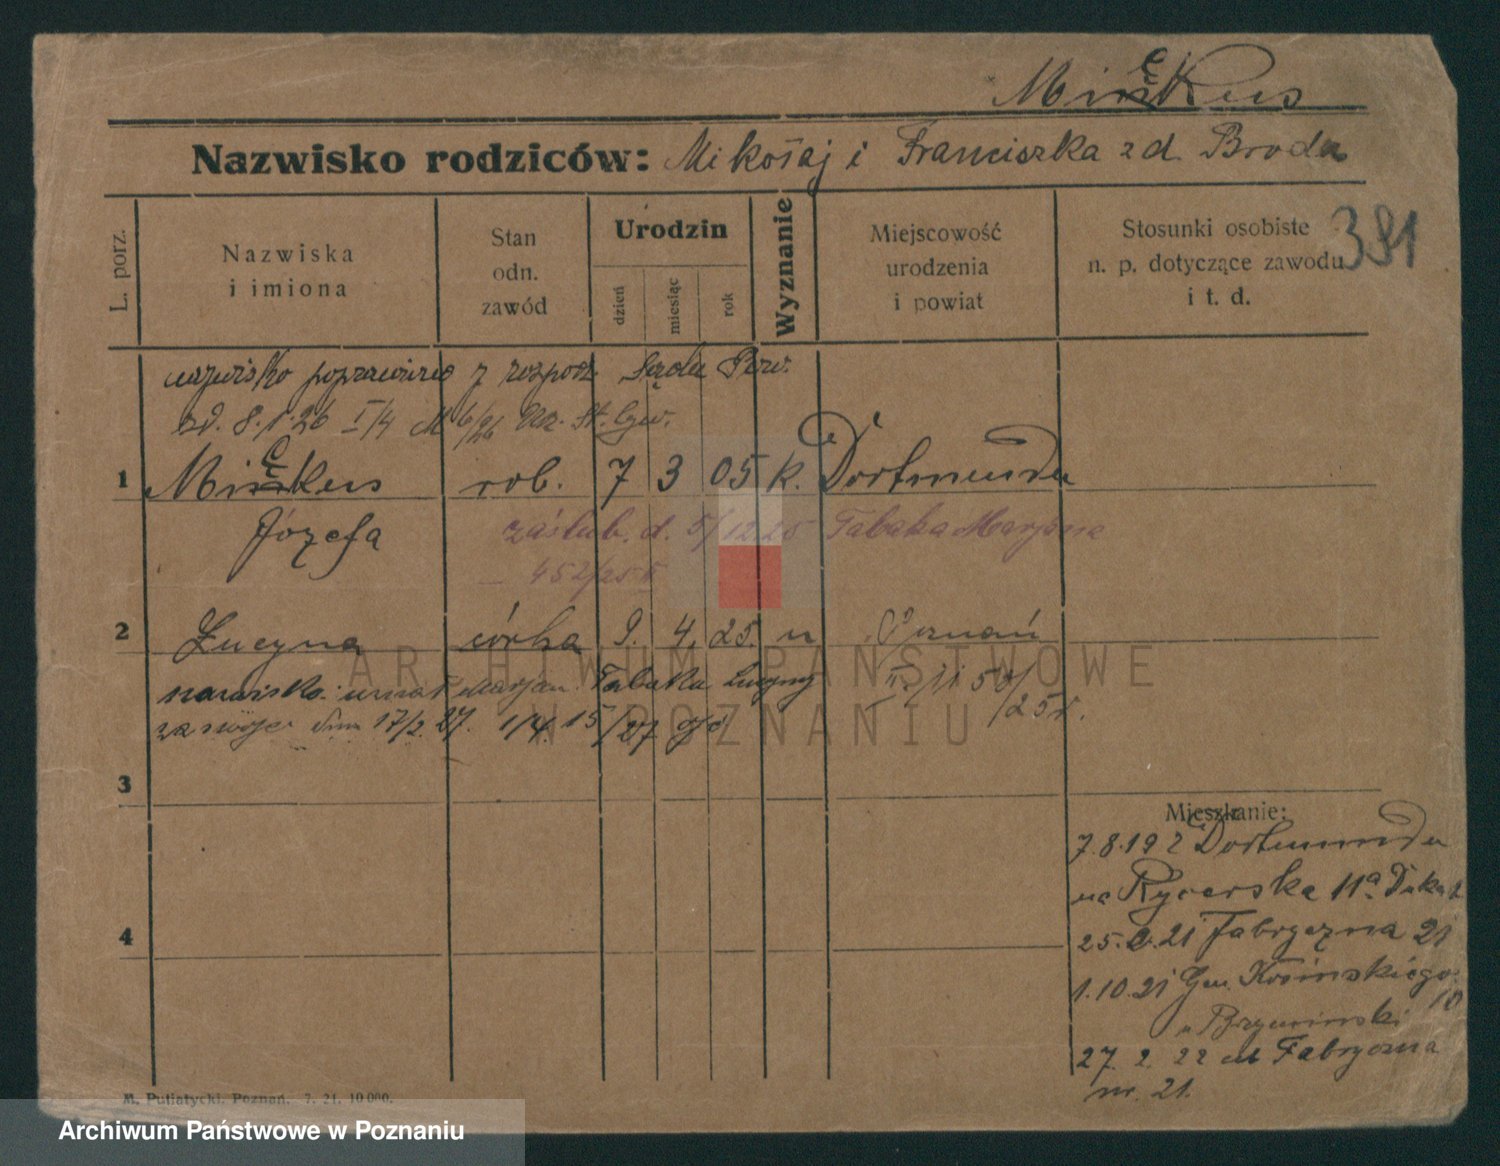 Miśkus
Nazwisko rodziców: Mikołaj i Franciszka z d. Broda
391
L. porz.
Nazwiska
i imiona
Stan
odn.
zawód
Urodzin
dzień
miesiąc
rok
Wyznanie
Miejscowość
urodzenia
i powiat
Stosunki osobiste
n. p. dotyczące zawodu
i t. d.
nazwisko poprawiono z rozporz. Sądu Pow.
zd. 8.1.26 I/4 M 6/26 Urz. St. Cyw.
1 rob. 7 3 05 k. Dortmund
Józefa
zaślub. d. 5/12 25 Tabaka Marjana
452/25
2 Lucyna córka 9. 4. 25. n Poznań
nazwisko: uznał Marjan Tabaka Lucynę
za swoje dnia 17/2. 27. 1/4. 15/27
II 50/25
3
Mieszkanie:
7.8.19 z Dortmundu
na Rycerska 11a
4
25. 21 Fabryczna 21
1.10.21 Gen. Kosińskiego
10
27. 2. 22 Fabryczna
nr. 21.
M. Putiatycki, Poznań. 7. 21. 10 000.
ARCHIWUM PAŃSTWOWE
W POZNANIU
Archiwum Państwowe w Poznaniu